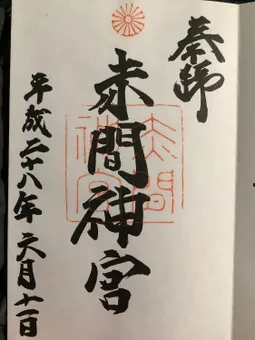 奉拝
赤間神宮
赤間
神宮
平成二十八年 六月十一日